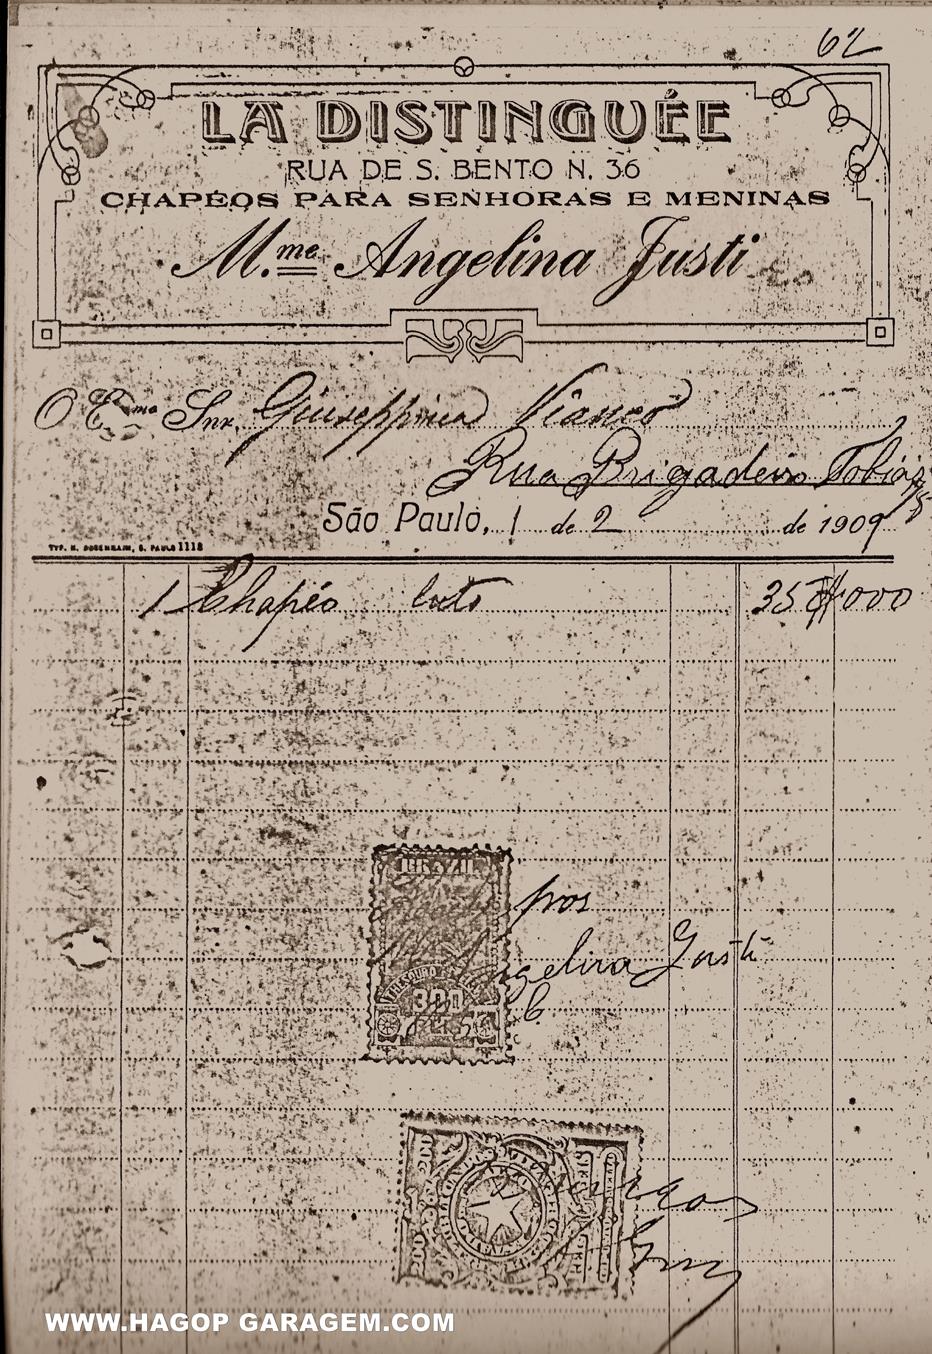 62
LA DISTINGUÉE
RUA DE S. BENTO N. 36
CHAPÉOS PARA SENHORAS E MENINAS
M.me Angelina Justi
O Exmo Snr. Giuseppina Vianco
Rua Brigadeiro Tobias
São Paulo, 1 de 2 de 1909
TYP. H. ROSENHAIN, S. PAULO 1118
1 Chapéo luto 35$000
BRAZIL
pros
Angelina Justi
THESOURO
300
RÉIS
WWW.HAGOP GARAGEM.COM